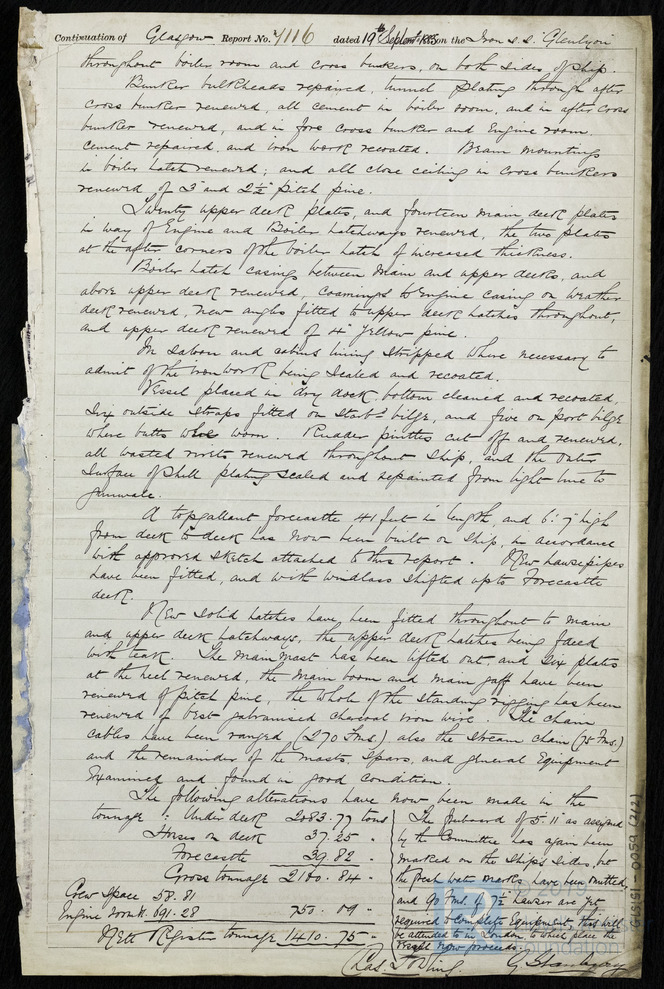 Continuation of Glasgow Report No. 7116 dated 19th Septemr 1885 on the Iron s.s. Glenlyon
throughout boiler room and cross bunkers, on both sides of ship.
Bunker bulkheads repaired, tunnel plating through after
cross bunker renewed, all cement in boiler room, and in after cross
bunker renewed, and in fore cross bunker and Engine room
cement repaired, and iron work recoated. Beam mountings
in boiler hatch renewed; and all close ceiling in cross bunkers
renewed of 3" and 2½" pitch pine.
Twenty upper deck plates, and fourteen main deck plates
in way of Engine and Boiler hatchways renewed, the two plates
at the after corners of the boiler hatch of increased thickness.
Boiler hatch casings between main and upper decks, and
above upper deck renewed, coamings to engine casing on weather
deck renewed, new angles fitted to upper deck hatches throughout,
and upper deck renewed of 4" yellow pine.
In saloon and cabins lining stripped where necessary to
admit of the iron work being scaled and recoated.
Vessel placed in dry dock, bottom cleaned and recoated,
Six outside straps fitted on Starbd bilge, and five on port bilge
where butts were worn. Rudder pintles cut off and renewed,
all wasted rivets renewed throughout ship, and the outer
surface of shell plating scaled and repainted from light line to
gunwale.
A topgallant forecastle 41 feet in length, and 6'.7" high
from deck to deck has now been built on ship, in accordance
with approved sketch attached to this report. New hawsepipes
have been fitted, and with windlass shifted up to Forecastle
deck.
New solid hatches have been fitted throughout to main
and upper deck hatchways, the upper deck hatches being faced
with teak. The main mast has been lifted out, and six plates
at the heel renewed, the main boom and main gaff have been
renewed of pitch pine, the whole of the standing rigging has been
renewed of best galvanised charcoal iron wire. The chain
cables have been ranged (270 Fms.) also the stream chain (75 Fms.)
and the remainder of the masts, spars, and general Equipment
Examined and found in good condition.
The following alterations have now been made in the
tonnage: Under deck 2083.77 tons
Houses on deck 37.25 "
Forecastle 39.82 "
Gross tonnage 2160.84 "
Crew Space 58.81
Engine room &c. 691.28 750.09 "
Nett Register tonnage 1410.75 "
The freeboard of 5'.11" as assigned
by the Committee has again been
marked on the ship's sides, but
the fresh water marks have been omitted,
and 90 Fms. of 7½" hawser are yet
required to complete Equipment, this will
be attended to in London, to which place the
vessel now proceeds.
G. Stanbury
© 2019
Foundation